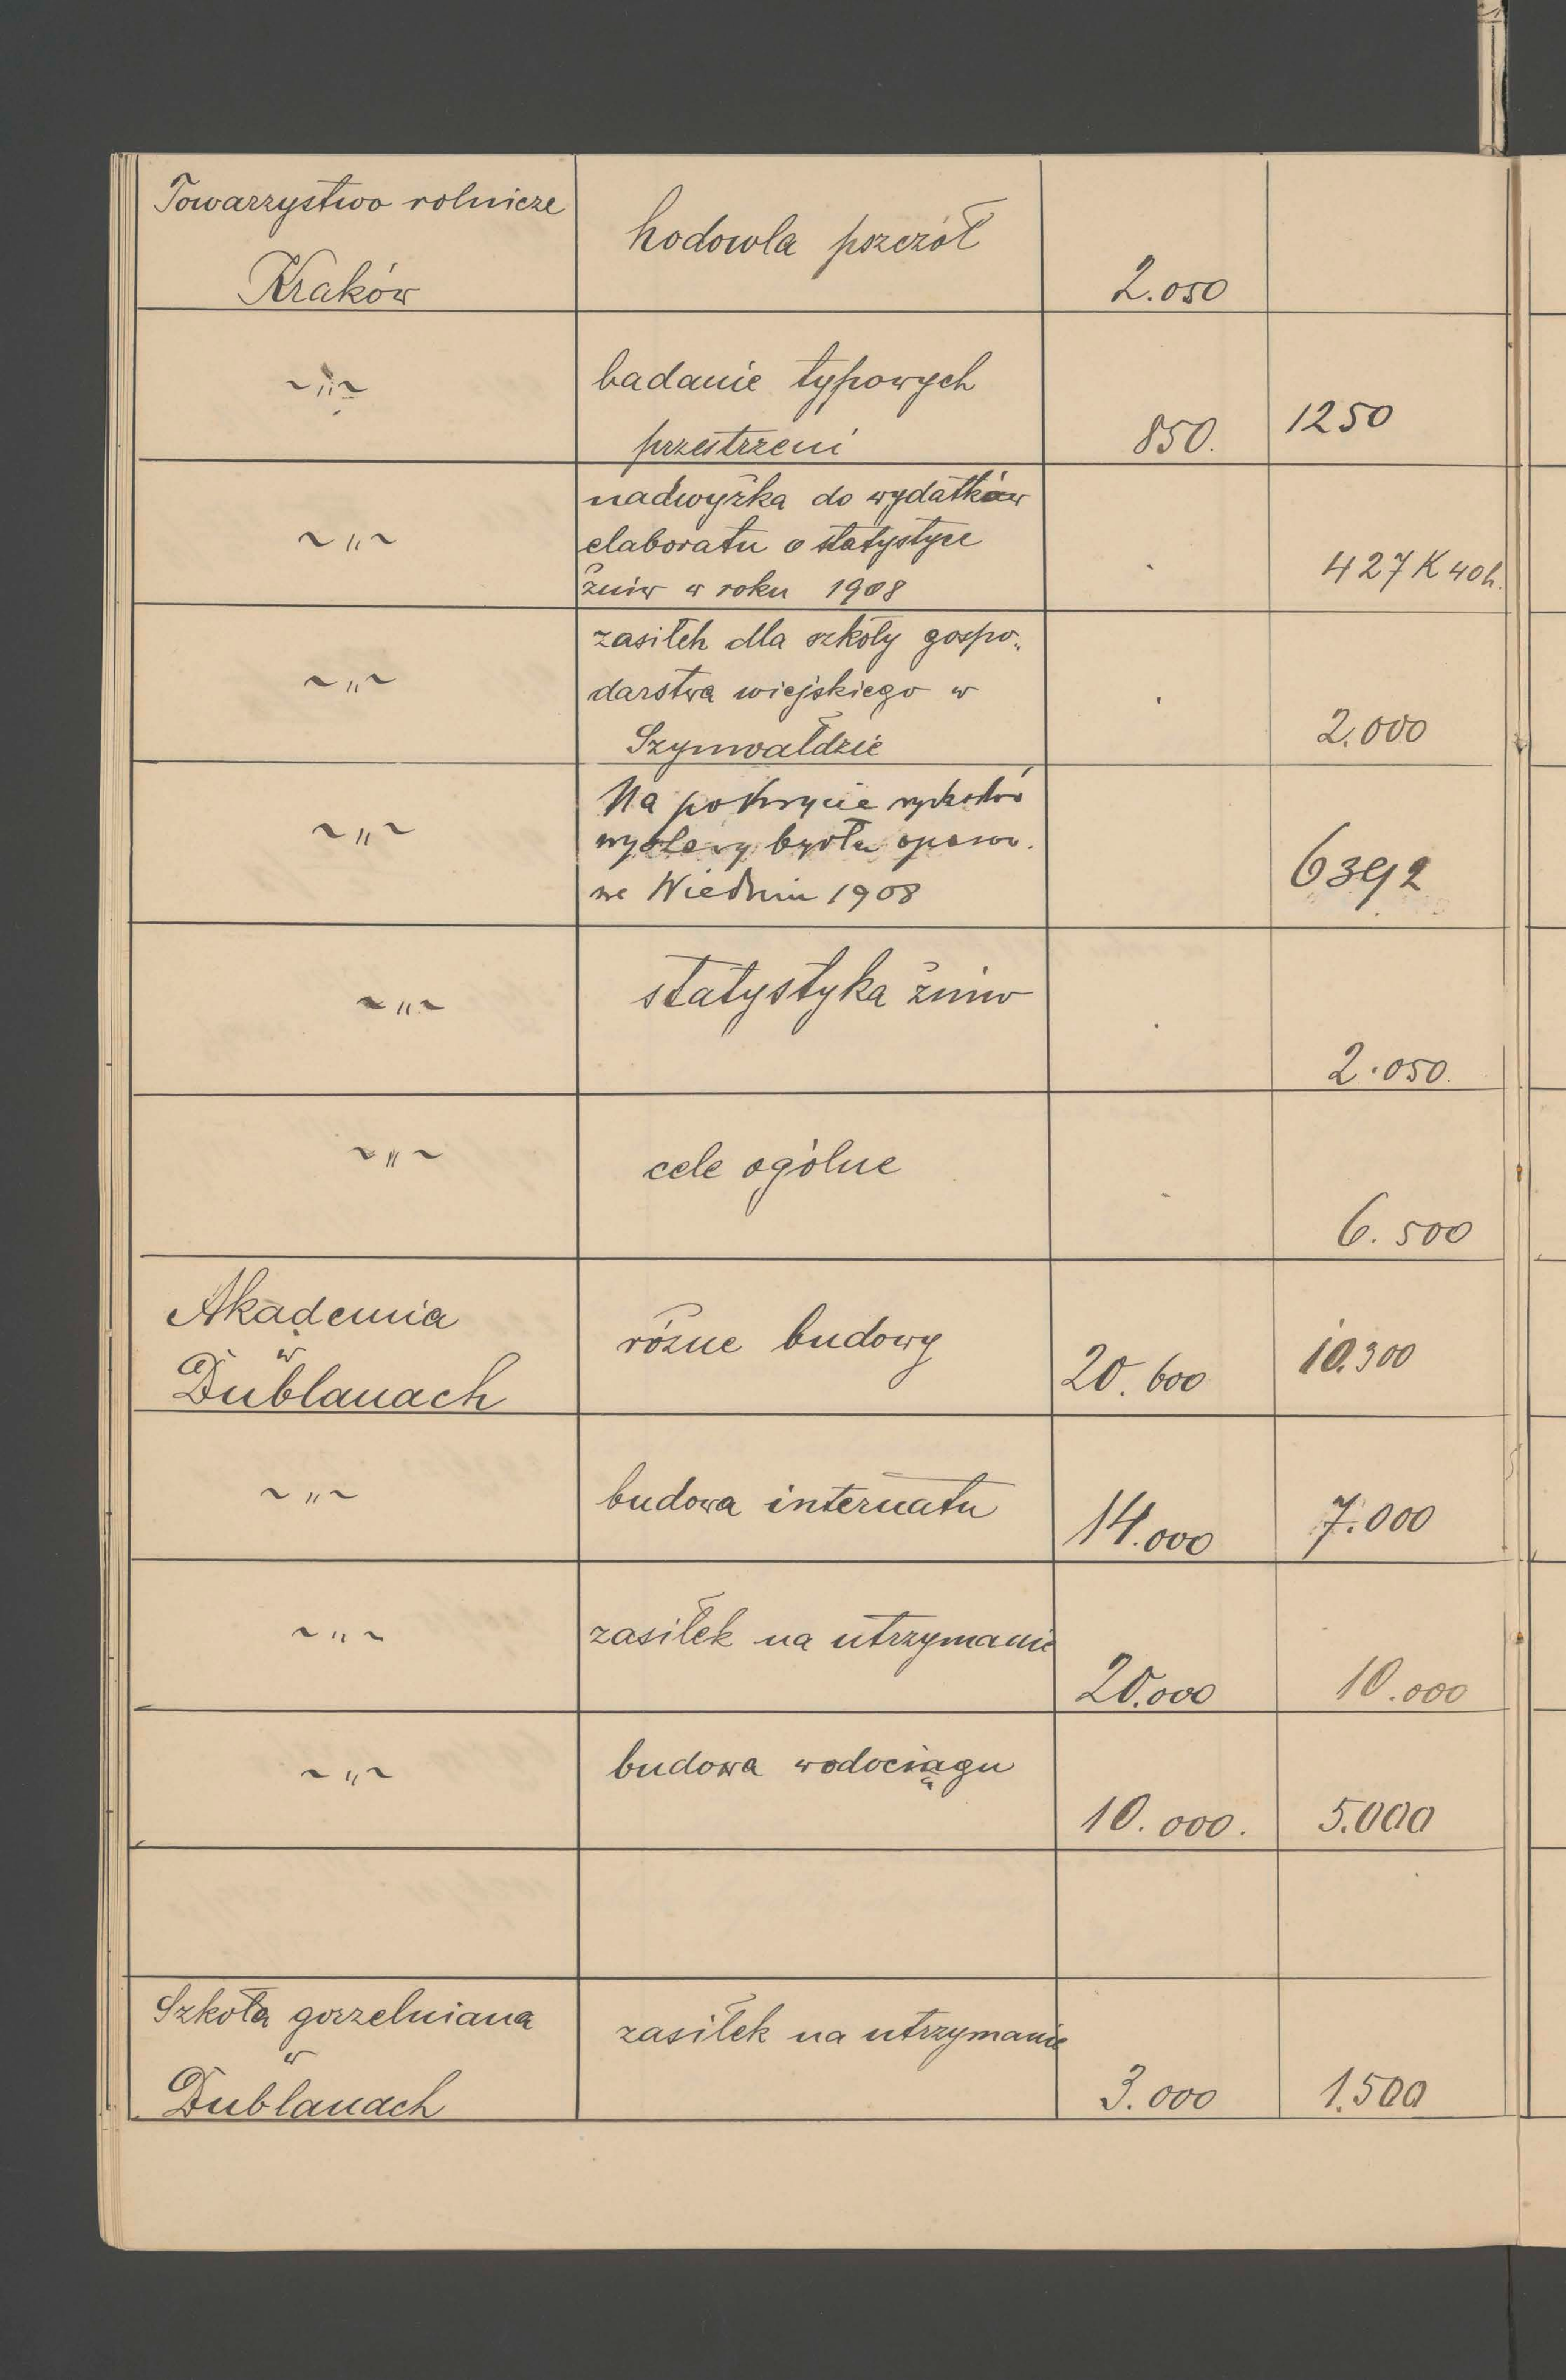 Towarzystwo rolnicze
Kraków
hodowla pszczół
2.050
~„~
badanie typowych
przestrzeni
850.
1250
~„~
nadwyżka do wydatków
elaboratu o statystyce
żniw w roku 1908
427 K 40 h.
~„~
zasiłek dla szkoły gospo„
darstwa wiejskiego w
Szynwałdzie
2.000
~„~
Na pokrycie wydatków
wystawy bydła opasow.
we Wiedniu 1908
6392
~„~
statystyka żniw
2.050.
~„~
cele ogólne
6.500
Akademia
w
Dublanach
różne budowy
20.600
10.300
~„~
budowa internatu
14.000
7.000
~„~
zasiłek na utrzymanie
20.000
10.000
~„~
budowa wodociągu
10.000.
5.000
Szkoła gorzelniana
w
Dublanach
zasiłek na utrzymanie
3.000
1.500